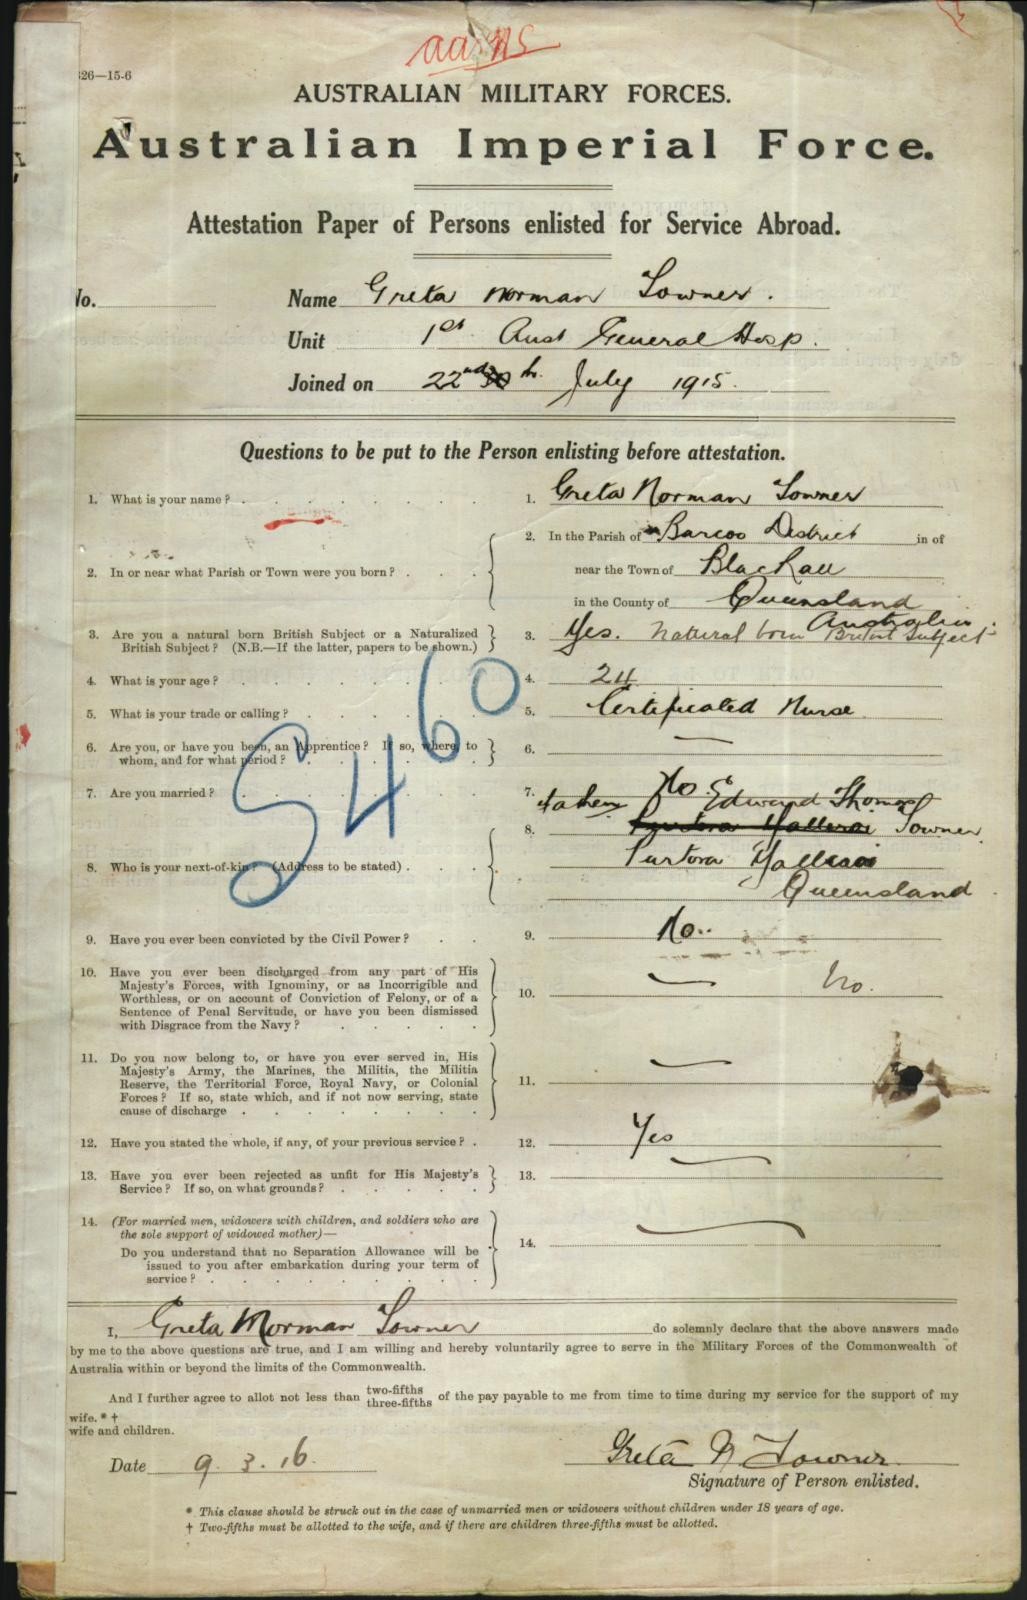 aans
26—15-6
AUSTRALIAN MILITARY FORCES.
Australian Imperial Force.
Attestation Paper of Persons enlisted for Service Abroad.
No.
Name Greta Norman Towner.
Unit 1st Aust General Hosp.
Joined on 22nd July 1915.
Questions to be put to the Person enlisting before attestation.
1. What is your name? 1. Greta Norman Towner
2. In or near what Parish or Town were you born? 2. In the Parish of Barcoo District in of
near the Town of Blackall
in the County of Queensland
Australia.
3. Are you a natural born British Subject or a Naturalized
British Subject? (N.B.—If the latter, papers to be shown.) 3. Yes. Natural born British Subject
4. What is your age? 4. 24
5. What is your trade or calling? 5. Certificated Nurse
6. Are you, or have you been, an Apprentice? If so, where, to
whom, and for what period? 6. —
7. Are you married? 7. No
8. Who is your next-of-kin? (Address to be stated) 8. Father Edward Thomas
Towner
Yalleroi
Queensland
5460
9. Have you ever been convicted by the Civil Power? 9. No.
10. Have you ever been discharged from any part of His
Majesty's Forces, with Ignominy, or as Incorrigible and
Worthless, or on account of Conviction of Felony, or of a
Sentence of Penal Servitude, or have you been dismissed
with Disgrace from the Navy? 10. — No.
11. Do you now belong to, or have you ever served in, His
Majesty's Army, the Marines, the Militia, the Militia
Reserve, the Territorial Force, Royal Navy, or Colonial
Forces? If so, state which, and if not now serving, state
cause of discharge 11. —
12. Have you stated the whole, if any, of your previous service? 12. Yes
13. Have you ever been rejected as unfit for His Majesty's
Service? If so, on what grounds? 13. —
14. (For married men, widowers with children, and soldiers who are
the sole support of widowed mother)—
Do you understand that no Separation Allowance will be
issued to you after embarkation during your term of
service? 14. —
I, Greta Norman Towner do solemnly declare that the above answers made
by me to the above questions are true, and I am willing and hereby voluntarily agree to serve in the Military Forces of the Commonwealth of
Australia within or beyond the limits of the Commonwealth.
And I further agree to allot not less than two-fifths three-fifths of the pay payable to me from time to time during my service for the support of my
wife.* †
wife and children.
Date 9.3.16. Greta N. Towner
Signature of Person enlisted.
* This clause should be struck out in the case of unmarried men or widowers without children under 18 years of age.
† Two-fifths must be allotted to the wife, and if there are children three-fifths must be allotted.